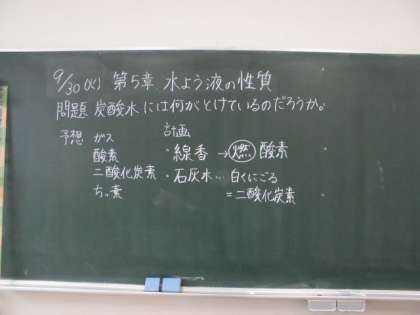 9/30(火) 第5章 水よう液の性質
問題 炭酸水には何がとけているのだろうか。
予想 ガス
酸素
二酸化炭素
ちっ素
計画
・線香→燃 酸素
・石灰水…白くにごる
=二酸化炭素